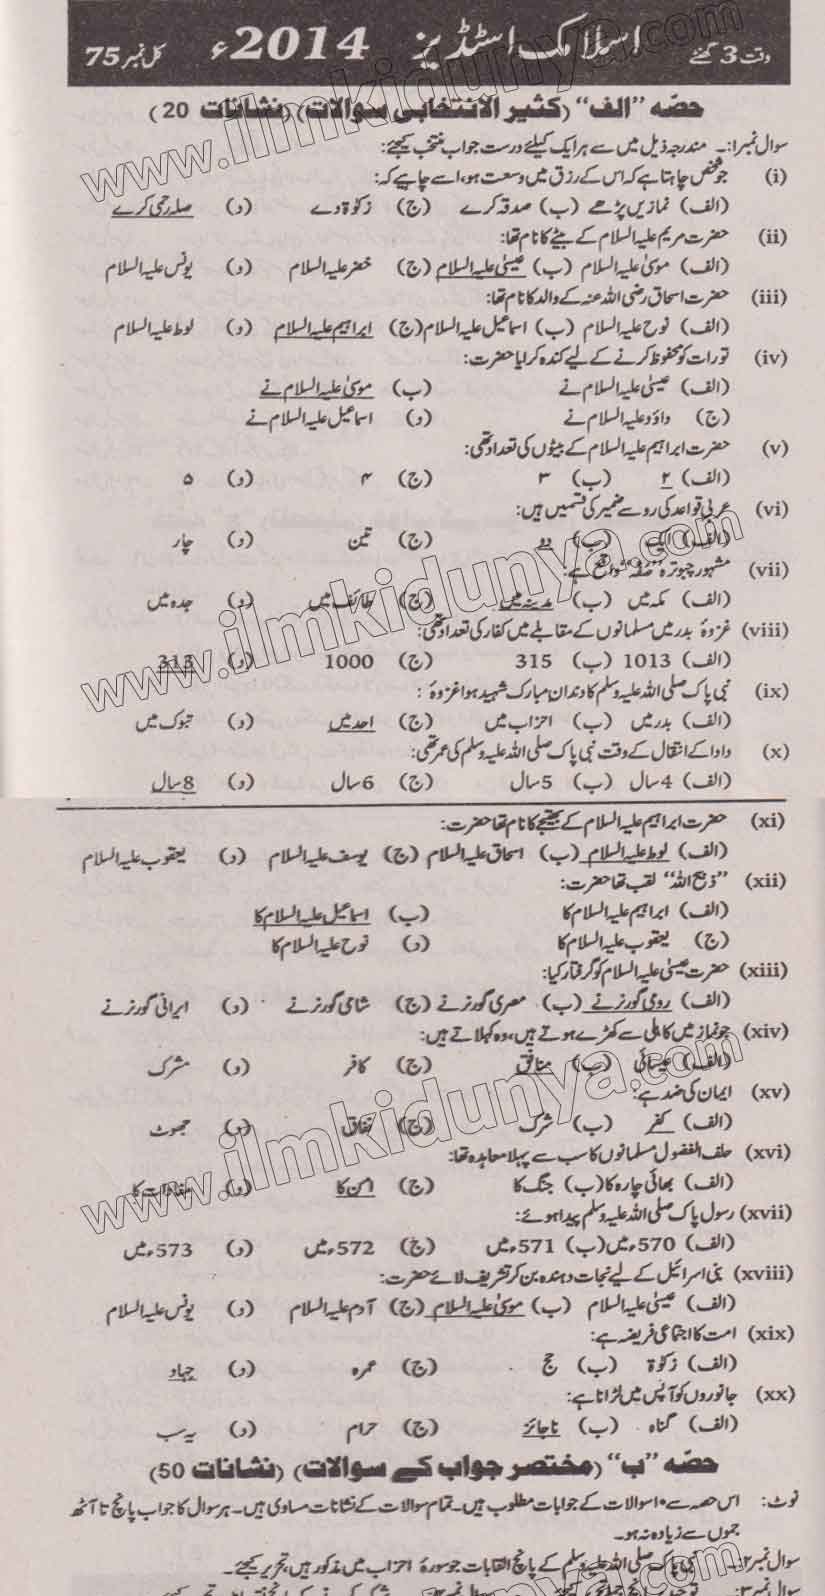 وقت 3 گھنٹے اسلامک اسٹڈیز 2014ء کل نمبر 75
حصّہ "الف" (کثیر الانتخابی سوالات) (نشانات 20)
سوال نمبر۱:۔ مندرجہ ذیل میں سے ہر ایک کیلئے درست جواب منتخب کیجئے:
(i) جو شخص چاہتا ہے کہ اس کے رزق میں وسعت ہو، اسے چاہیے کہ:
(الف) نمازیں پڑھے (ب) صدقہ کرے (ج) زکوٰۃ دے (د) صلہ رحمی کرے
(ii) حضرت مریم علیہ السلام کے بیٹے کا نام تھا:
(الف) موسیٰ علیہ السلام (ب) عیسیٰ علیہ السلام (ج) خضر علیہ السلام (د) یونس علیہ السلام
(iii) حضرت اسحاق رضی اللہ عنہ کے والد کا نام تھا:
(الف) نوح علیہ السلام (ب) اسماعیل علیہ السلام (ج) ابراہیم علیہ السلام (د) لوط علیہ السلام
(iv) تورات کو محفوظ کرنے کے لیے کندہ کرایا حضرت:
(الف) عیسیٰ علیہ السلام نے (ب) موسیٰ علیہ السلام نے
(ج) داؤد علیہ السلام نے (د) اسماعیل علیہ السلام نے
(v) حضرت ابراہیم علیہ السلام کے بیٹوں کی تعداد تھی:
(الف) ۲ (ب) ۳ (ج) ۴ (د) ۵
(vi) عربی قواعد کی رو سے ضمیر کی قسمیں ہیں:
(الف) ایک (ب) دو (ج) تین (د) چار
(vii) مشہور چبوترہ "صفہ" واقع ہے:
(الف) مکہ میں (ب) مدینہ میں (ج) طائف میں (د) جدہ میں
(viii) غزوۂ بدر میں مسلمانوں کے مقابلے میں کفار کی تعداد تھی:
(الف) 1013 (ب) 315 (ج) 1000 (د) 313
(ix) نبی پاک صلی اللہ علیہ وسلم کا دندان مبارک شہید ہوا غزوۂ:
(الف) بدر میں (ب) احزاب میں (ج) احد میں (د) تبوک میں
(x) دادا کے انتقال کے وقت نبی پاک صلی اللہ علیہ وسلم کی عمر تھی:
(الف) 4 سال (ب) 5 سال (ج) 6 سال (د) 8 سال
(xi) حضرت ابراہیم علیہ السلام کے بھتیجے کا نام تھا حضرت:
(الف) لوط علیہ السلام (ب) اسحاق علیہ السلام (ج) یوسف علیہ السلام (د) یعقوب علیہ السلام
(xii) "ذبیح اللہ" لقب تھا حضرت:
(الف) ابراہیم علیہ السلام کا (ب) اسماعیل علیہ السلام کا
(ج) یعقوب علیہ السلام کا (د) نوح علیہ السلام کا
(xiii) حضرت عیسیٰ علیہ السلام کو گرفتار کیا:
(الف) رومی گورنر نے (ب) مصری گورنر نے (ج) شامی گورنر نے (د) ایرانی گورنر نے
(xiv) جو نماز میں کاہلی سے کھڑے ہوتے ہیں، وہ کہلاتے ہیں:
(الف) عیسائی (ب) منافق (ج) کافر (د) مشرک
(xv) ایمان کی ضد ہے:
(الف) کفر (ب) شرک (ج) نفاق (د) جھوٹ
(xvi) حلف الفضول مسلمانوں کا سب سے پہلا معاہدہ تھا:
(الف) بھائی چارہ کا (ب) جنگ کا (ج) امن کا (د) مفادات کا
(xvii) رسول پاک صلی اللہ علیہ وسلم پیدا ہوئے:
(الف) 570ء میں (ب) 571ء میں (ج) 572ء میں (د) 573ء میں
(xviii) بنی اسرائیل کے لیے نجات دہندہ بن کر تشریف لائے حضرت:
(الف) عیسیٰ علیہ السلام (ب) موسیٰ علیہ السلام (ج) آدم علیہ السلام (د) یونس علیہ السلام
(xix) امت کا اجتماعی فریضہ ہے:
(الف) زکوٰۃ (ب) حج (ج) عمرہ (د) جہاد
(xx) جانوروں کو آپس میں لڑانا ہے:
(الف) گناہ (ب) ناجائز (ج) حرام (د) یہ سب
حصّہ "ب" (مختصر جواب کے سوالات) (نشانات 50)
نوٹ: اس حصہ سے ۱۰ سوالات کے جوابات مطلوب ہیں۔ تمام سوالات کے نشانات مساوی ہیں۔ ہر سوال کا جواب پانچ تا آٹھ
جملوں سے زیادہ نہ ہو۔
سوال نمبر۲:۔ نبی پاک صلی اللہ علیہ وسلم کے پانچ القابات جو سورۂ احزاب میں مذکور ہیں، تحریر کیجئے۔
سوال نمبر۳:۔
www.ilmkidunya.com
www.ilmkidunya.com
www.ilmkidunya.com
www.ilmkidunya.com